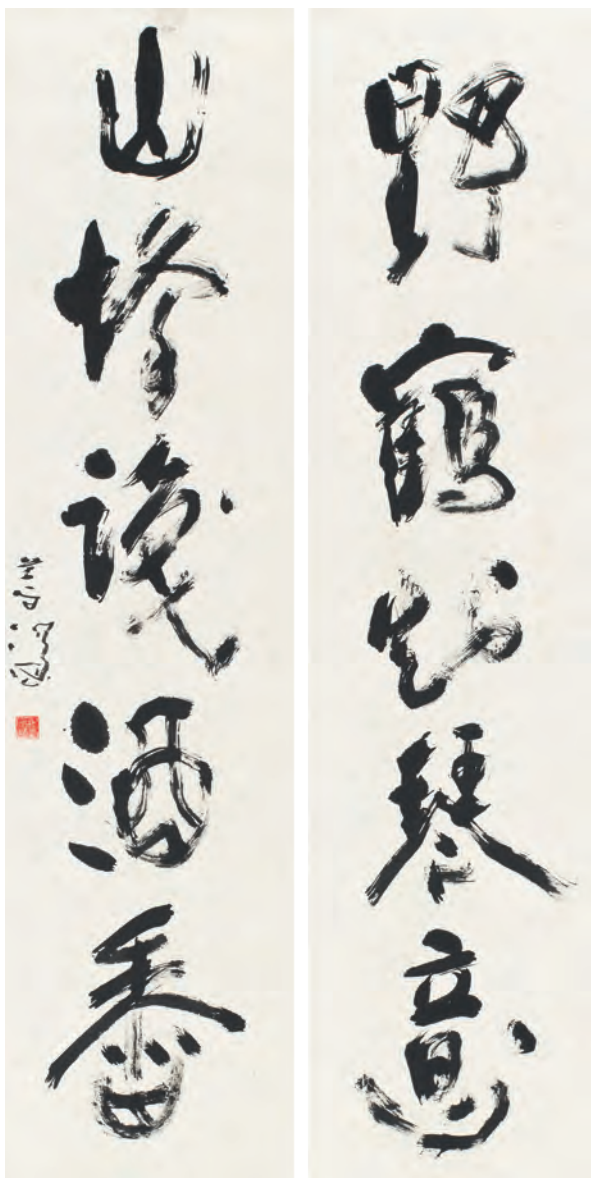 野鶴知琴意
山蜂識酒香